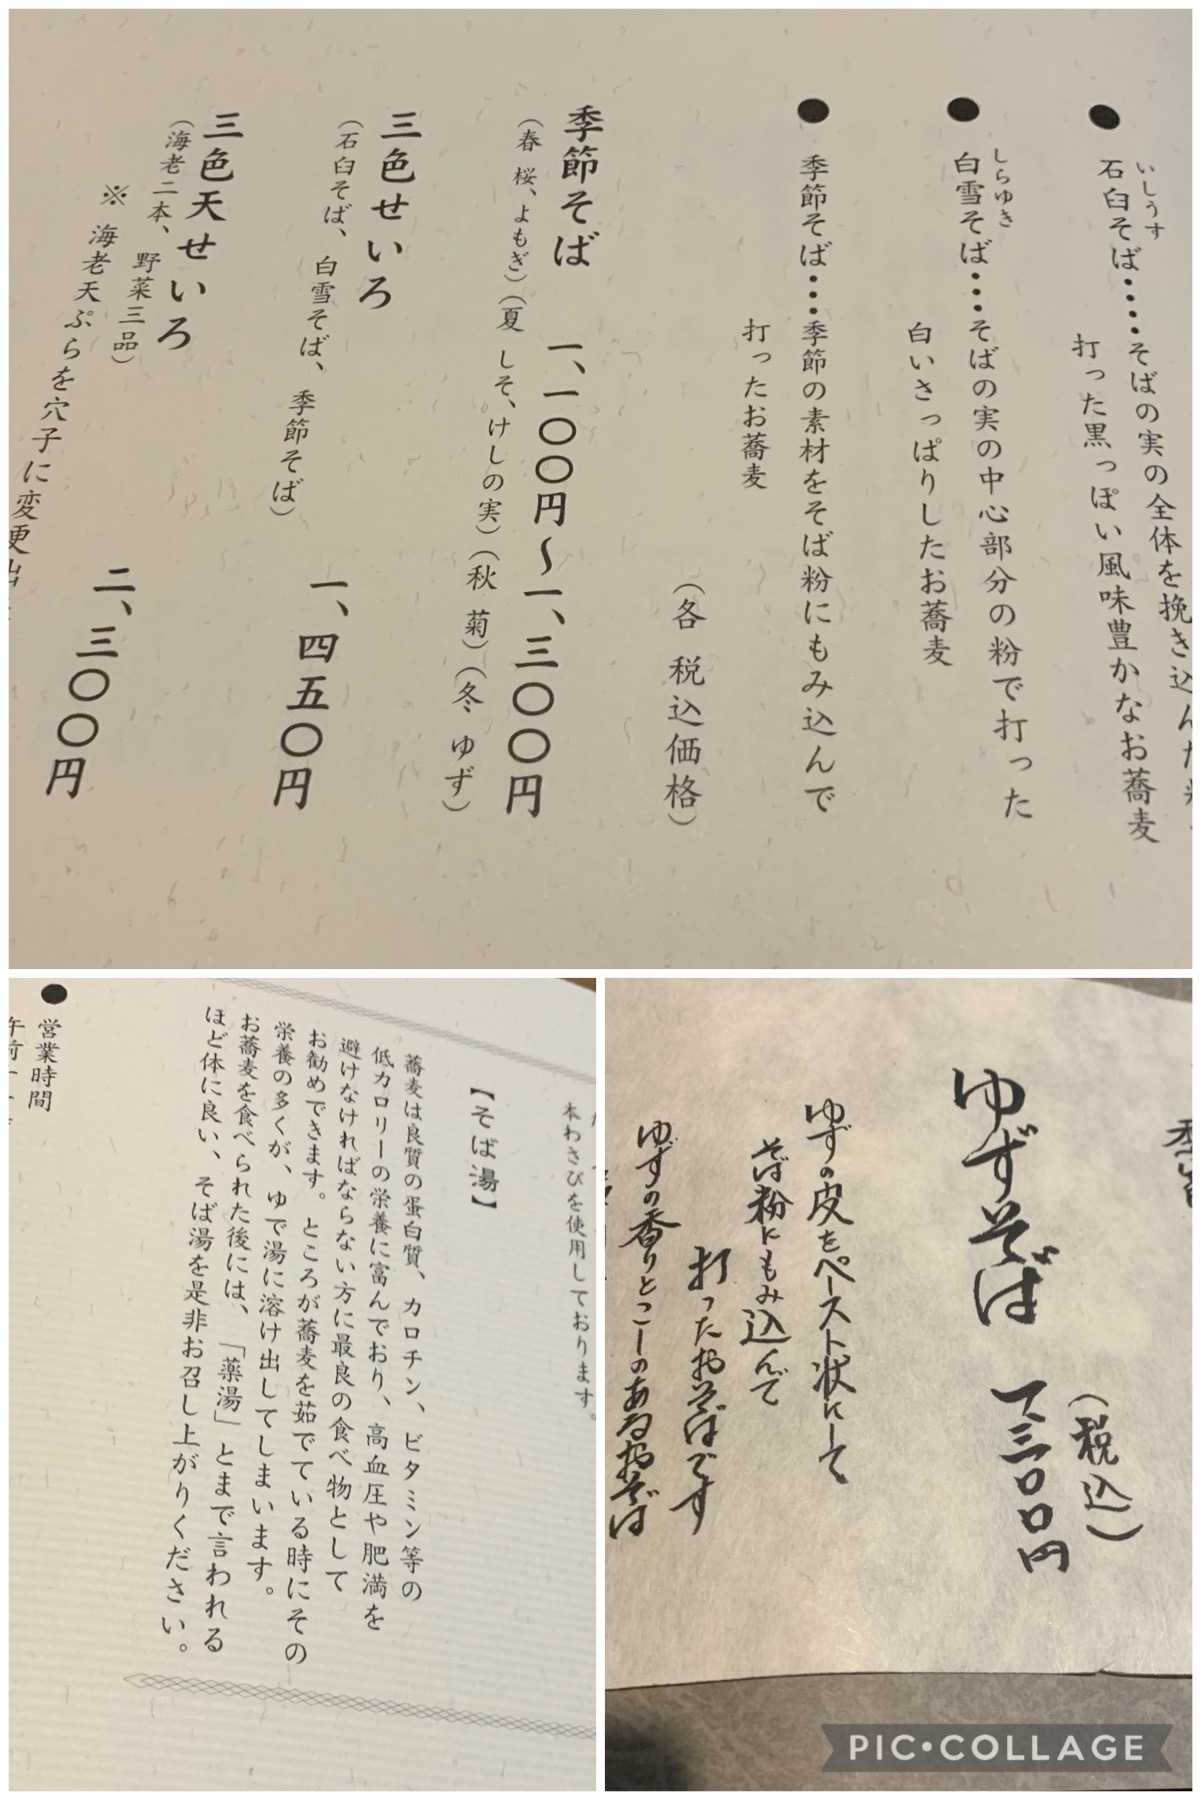 いしうす
石臼そば・・・・そばの実の全体を挽き込んだ
打った黒っぽい風味豊かなお蕎麦
しらゆき
● 白雪そば・・・そばの実の中心部分の粉で打った
白いさっぱりしたお蕎麦
● 季節そば・・・季節の素材をそば粉にもみ込んで
打ったお蕎麦
（各 税込価格）
季節そば 一、一〇〇円〜一、三〇〇円
（春 桜、よもぎ）（夏 しそ、けしの実）（秋 菊）（冬 ゆず）
三色せいろ 一、四五〇円
（石臼そば、白雪そば、季節そば）
三色天せいろ 二、三〇〇円
（海老二本、野菜三品）
※ 海老天ぷらを穴子に変更出
本わさびを使用しております。
【そば湯】
蕎麦は良質の蛋白質、カロチン、ビタミン等の
低カロリーの栄養に富んでおり、高血圧や肥満を
避けなければならない方に最良の食べ物として
お勧めできます。ところが蕎麦を茹でている時にその
栄養の多くが、ゆで湯に溶け出してしまいます。
お蕎麦を食べられた後には、「薬湯」とまで言われる
ほど体に良い、そば湯を是非お召し上がりください。
● 営業時間
午前十一
ゆずそば 一、三〇〇円
（税込）
ゆずの皮をペースト状にして
そば粉にもみ込んで
打ったおそばです
ゆずの香りとこしのあるおそば
PIC•COLLAGE